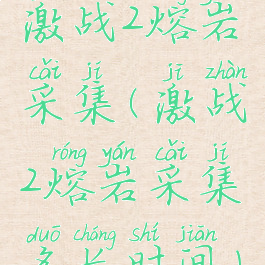 激战2熔岩
cǎi jí jī zhàn
采集(激战
róng yán cǎi jí
2熔岩采集
duō cháng shí jiān
多长时间)